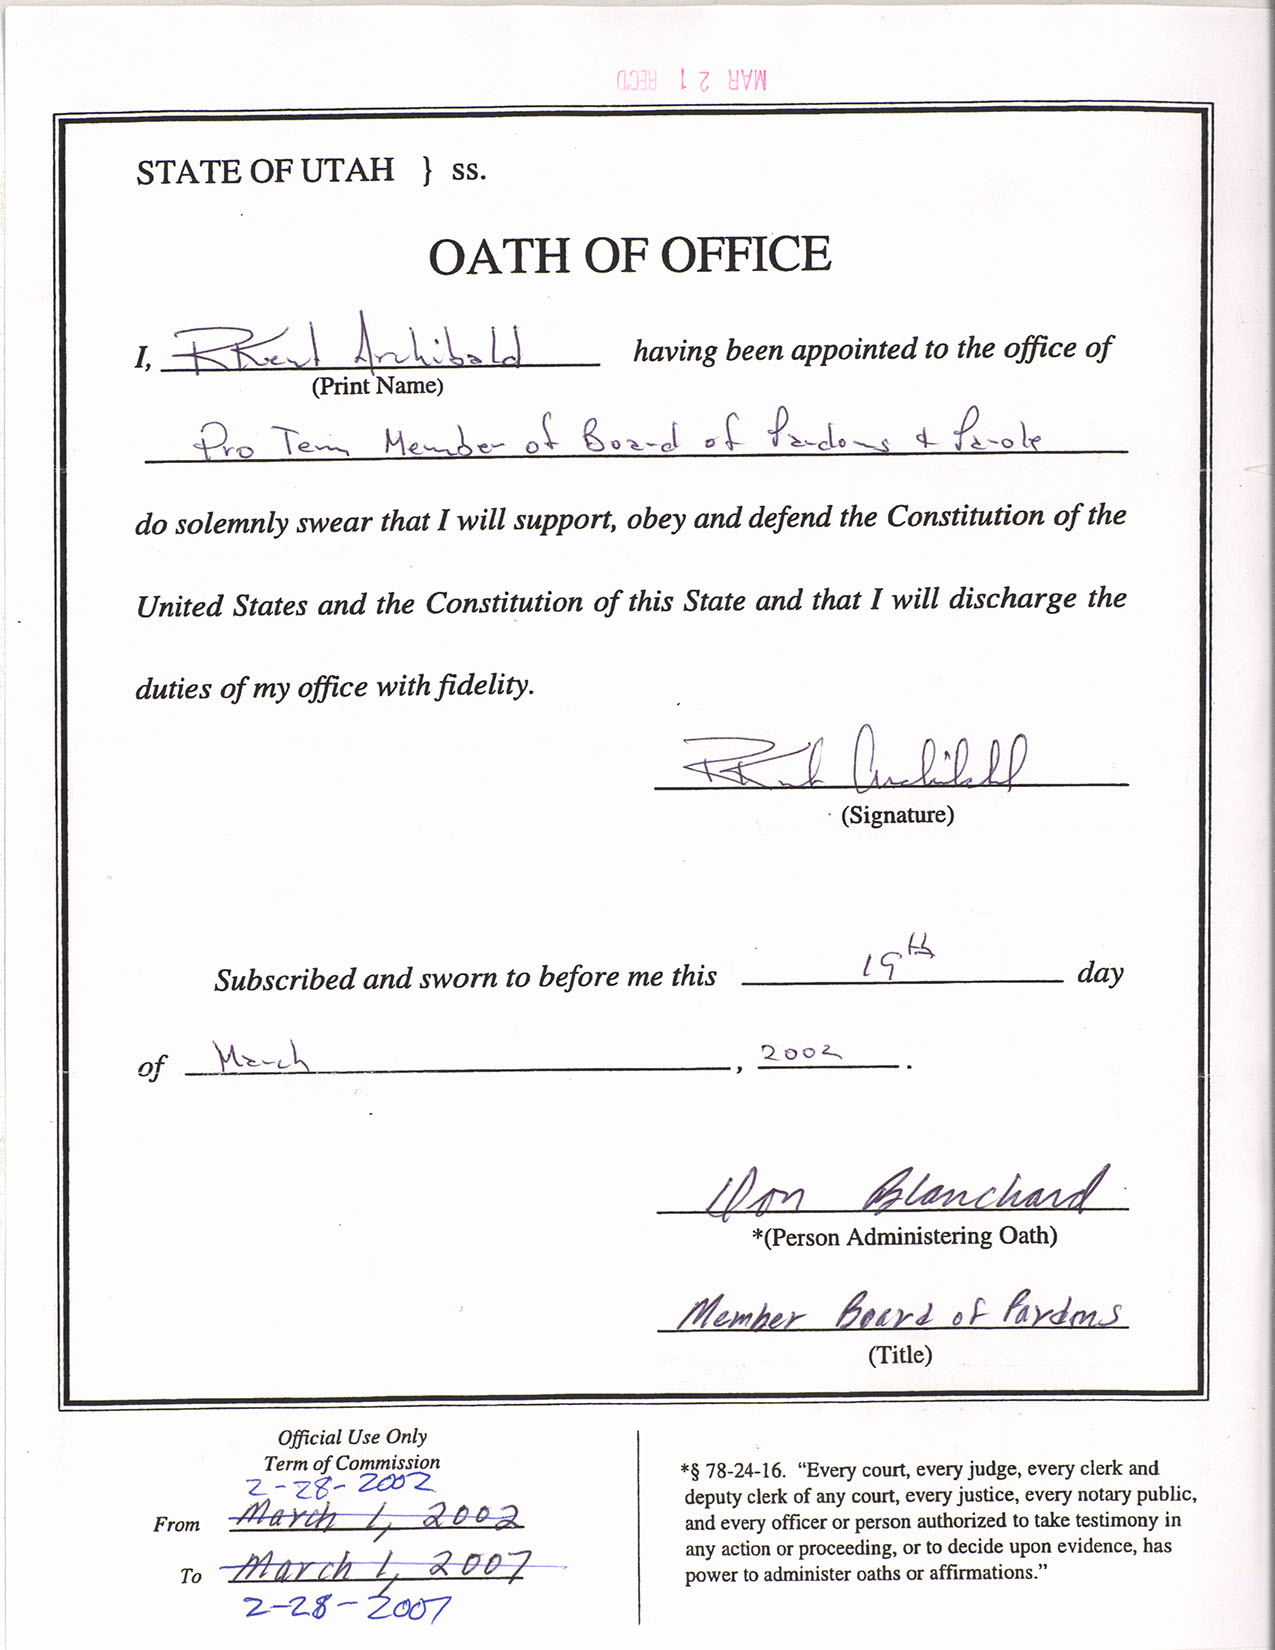 MAR 21 REC'D
STATE OF UTAH } ss.
OATH OF OFFICE
I, R Kent Archibald having been appointed to the office of
(Print Name)
Pro Tem Member of Board of Pardons & Parole
do solemnly swear that I will support, obey and defend the Constitution of the
United States and the Constitution of this State and that I will discharge the
duties of my office with fidelity.
R Kent Archibald
(Signature)
Subscribed and sworn to before me this 19th day
of March, 2002.
Don Blanchard
*(Person Administering Oath)
Member Board of Pardons
(Title)
Official Use Only
Term of Commission
2-28-2002
From March 1, 2002
To March 1, 2007
2-28-2007
*§ 78-24-16. “Every court, every judge, every clerk and
deputy clerk of any court, every justice, every notary public,
and every officer or person authorized to take testimony in
any action or proceeding, or to decide upon evidence, has
power to administer oaths or affirmations.”